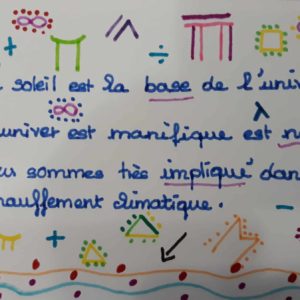 soleil est la base de l'univ
univer est manifique est n
sommes très impliqué dan
hauffement climatique.